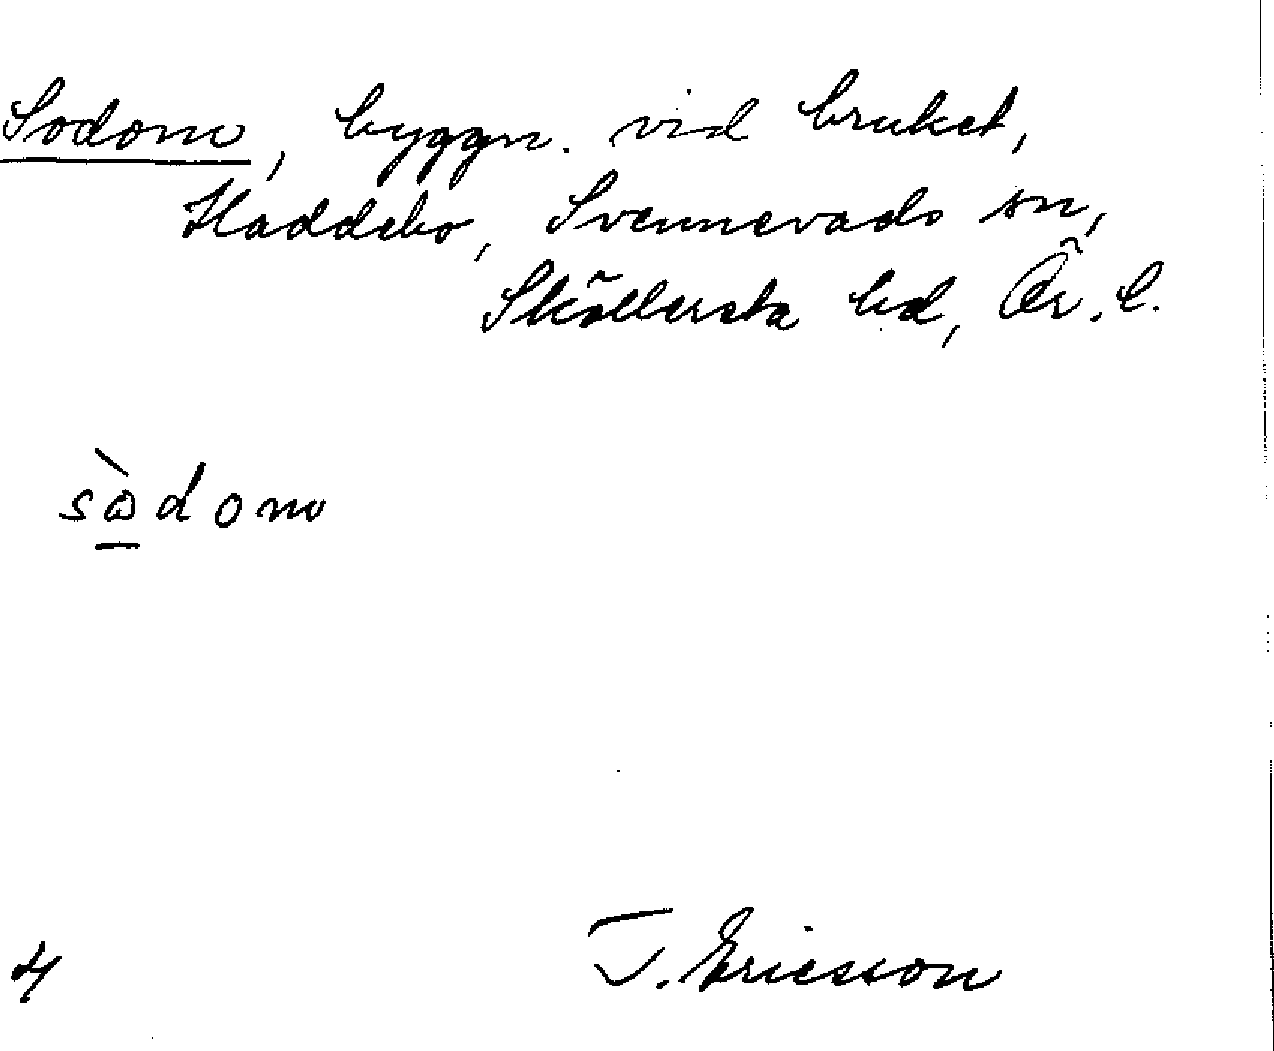 Sodom, byggn. vid bruket,
Haddebo, Svennevads sn,
Sköllersta hd, Ör. l.
sòdom
4
T. Ericsson